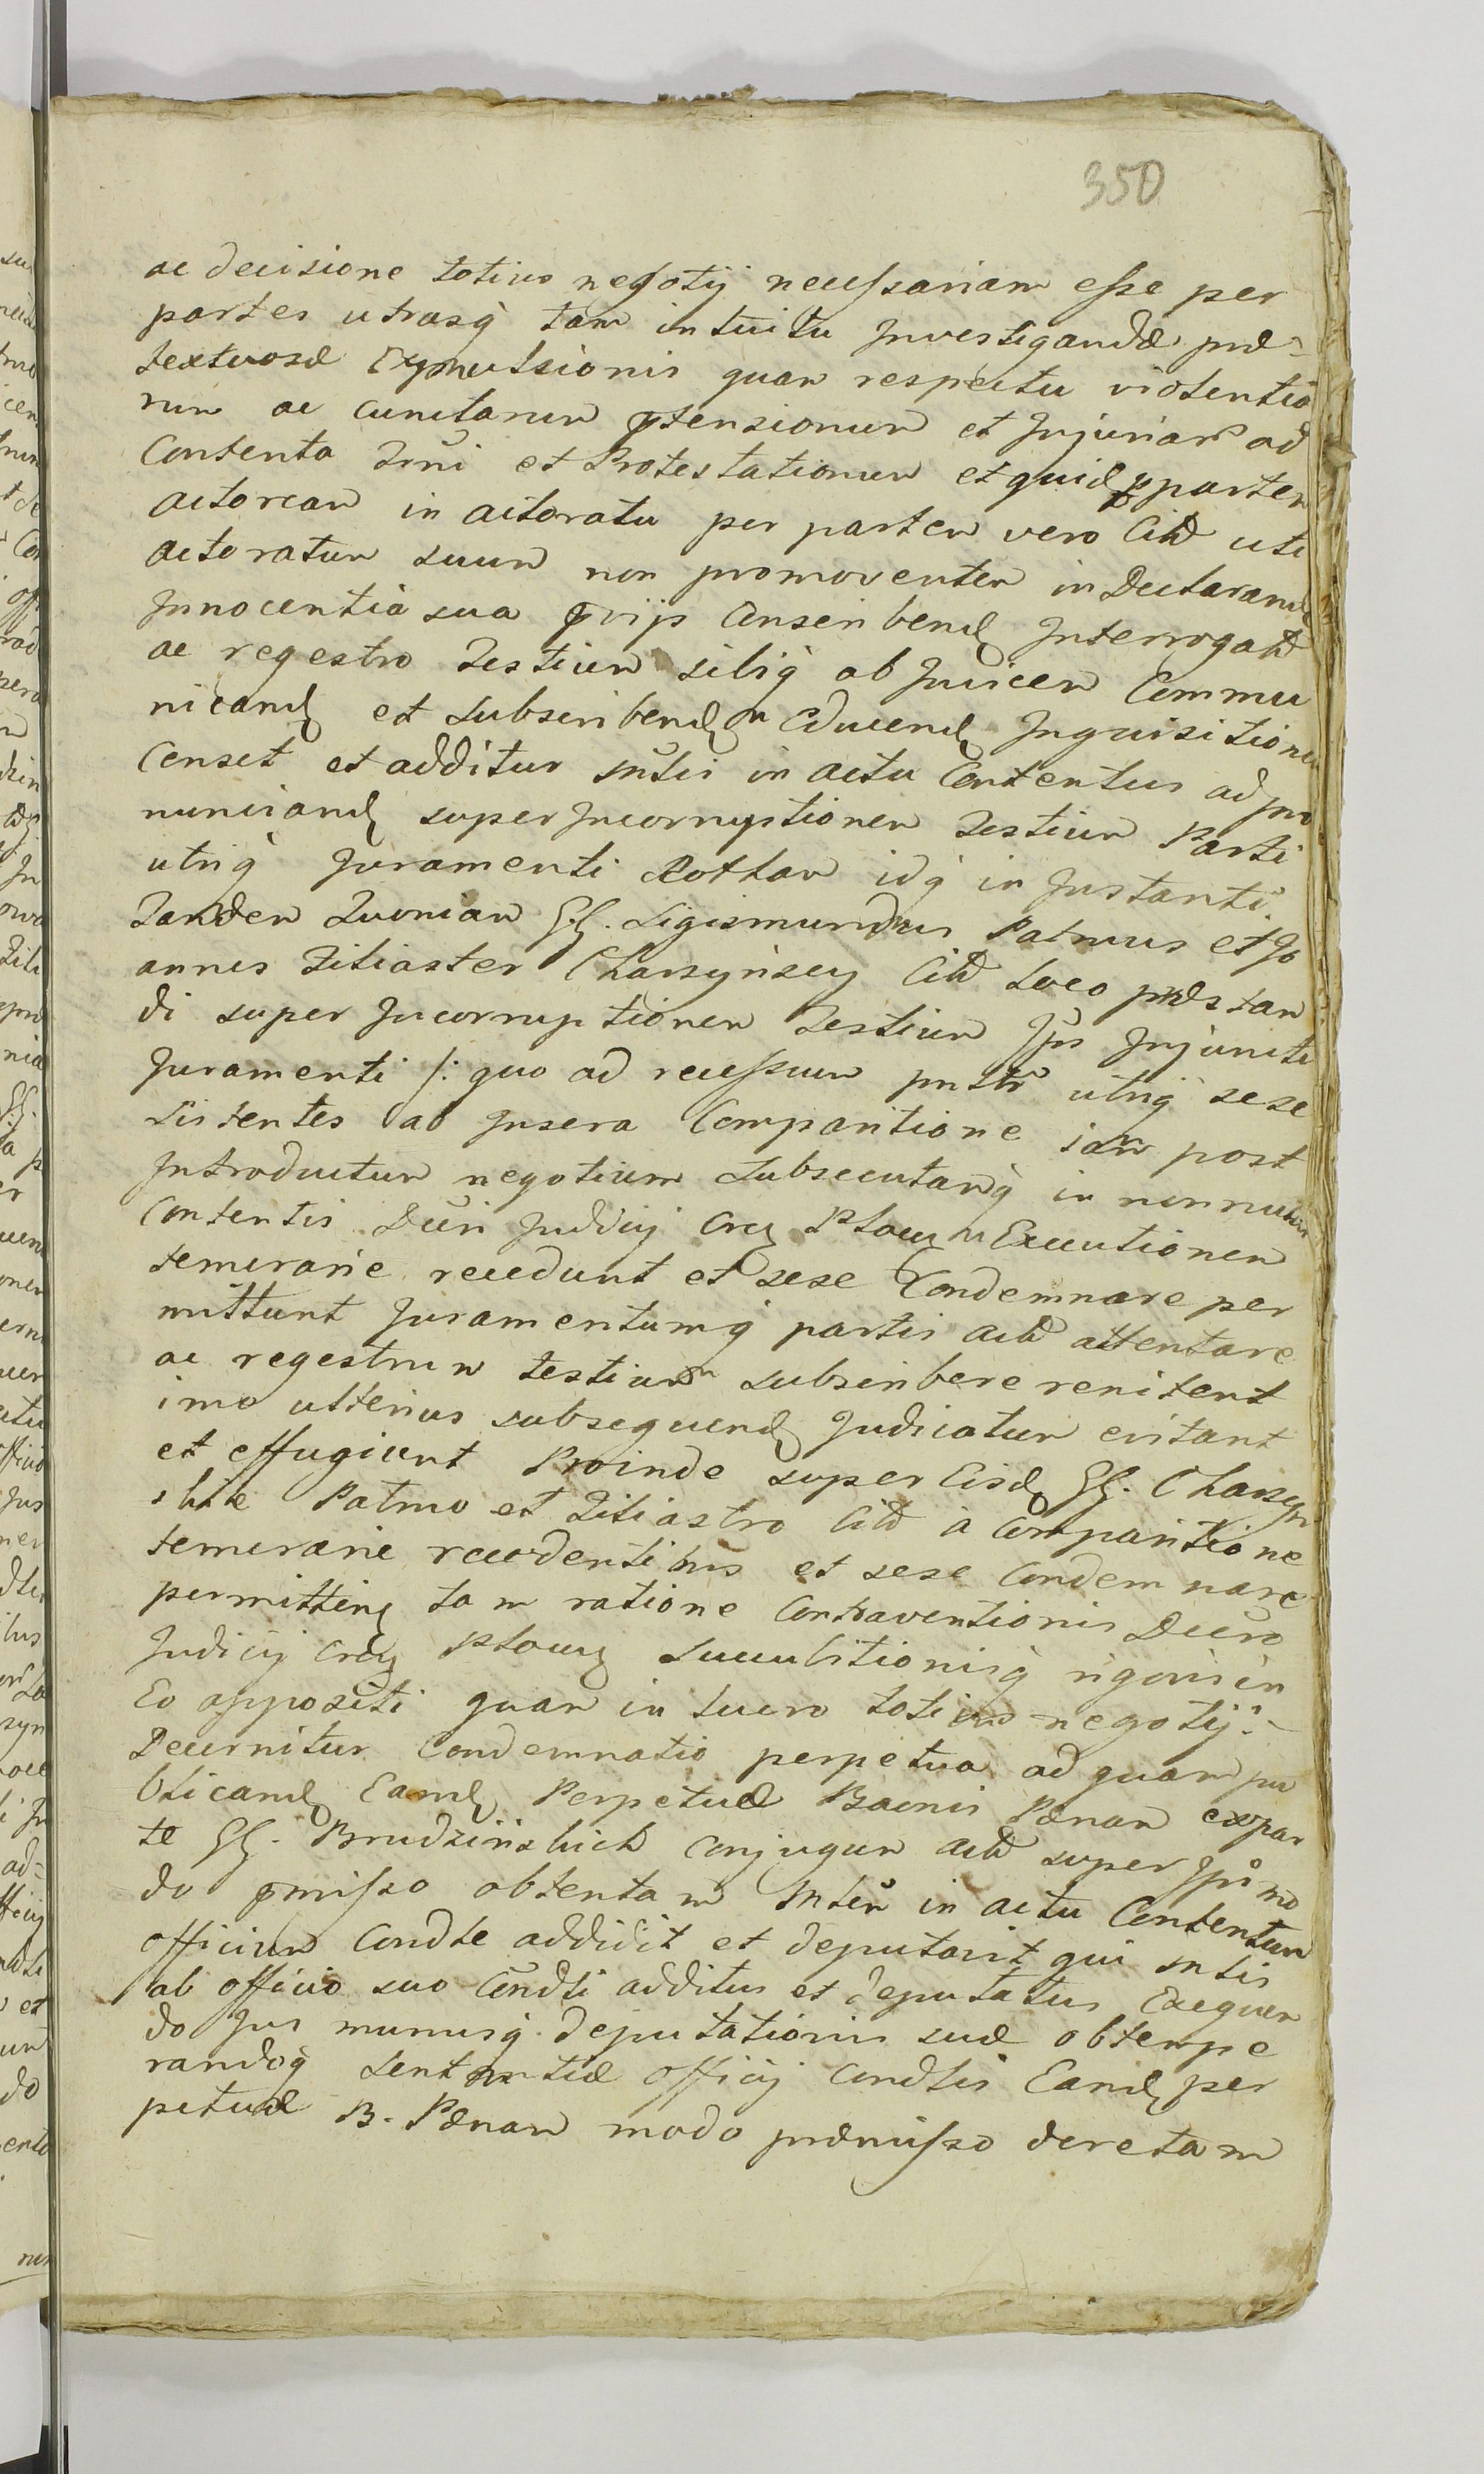 350
ac decisione totius negotij necessariam esse per
partes utrasq̀ tam intuitu Investigandæ præ=
textuosæ Expulsionis quam respectu violentia
rum ac cunctarum ptensionum et Injuriarũ ad
Contenta Trni et Protestationum et quid p partem
actoream in actoratu per partem vero Citt uti
actoratum suum non promoventem in Declarand
Innocentia sua prvijs Conscribend Interrogatt
ac regestro Testium sibiq̀ ab Invicem Commu
nicand et Subscribend Educend Inquisitionem
Censet et additur Mtlis in actu Contentus ad pro
nunciand super Incorruptionem Testium Parti
utriq̀ Juramenti Rottam idq̀ in Instanti.
Tandem Quoniam GG. Sigismundus Patruus et Jo
annes Fitiaster Charzyńscy Citt Loco præstan
di super Incorruptionem Testium Ips Injuncti
Juramenti /: quo ad recessum pnstr utriq̀ sese
sistentes ab Insera Comparitione iam post
Introductum negotium Subsecutamq̀ in nonnullis
Contentis Decri Judicij Crg Ploceñ Executionem
temerarie recedunt et sese Condemnare per
mittunt Juramentumq̀ partis actt attentare
ac regestrum testium subscribere renitent
imo ulterius subsequend Judicatum evitant
et effugiunt Proinde super Eisd GG. Charzyń
skie Patruo et Fitiastro Citt à Comparitione
temerarie recedentibus et sese Condemnare
permitten tam ratione Contraventionis Decro
Judicij Crg Ploceñ Succubitionisq̀ rigoris in
Eo appositi quam in lucro totius negotij.-
Decernitur Condemnatio perpetua ad quam pu
blicand Eand Perpetuæ Bannis Pænam ex par
te GG. Brudzińskich Conjugum actt super Ips mo
do pmisso obtentam Mtlem in actu Contentum
officium Condle addidit et deputavit qui Mtlis
ab officio suo Condli additus et deputatus Exequen
do Jus munusq̀ deputationis suæ obtempe
randoq̀ Sententiæ officij Condlis Eand per
petuæ B. Pænam modo præmisso decretam